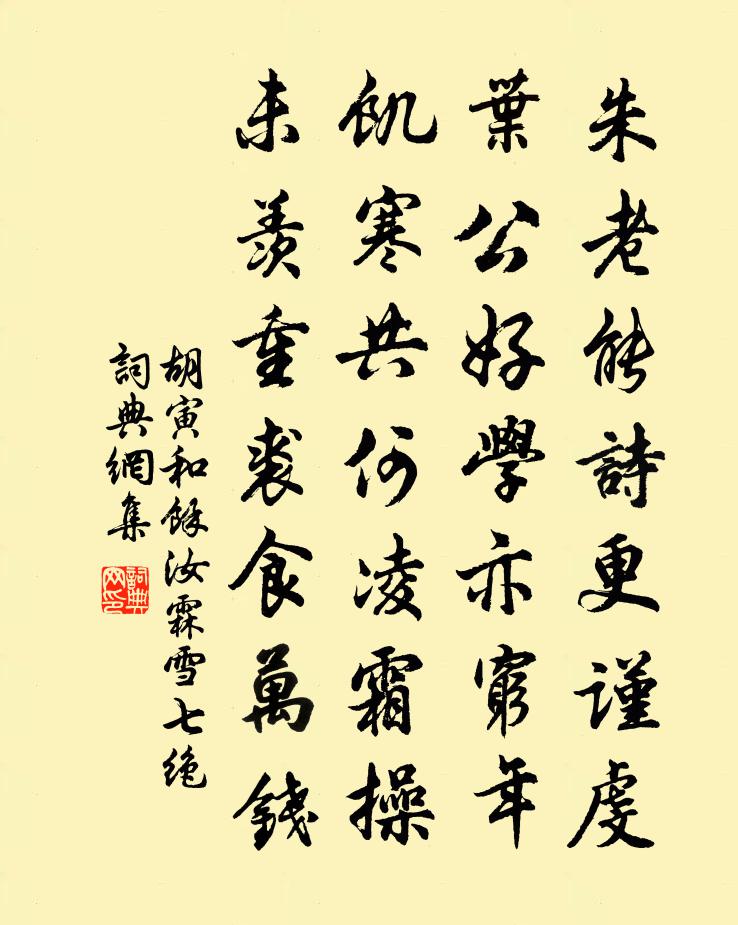 朱老能詩更謹虔
葉公好學亦窮年
飢寒共何凌霜操
未羨重裘食萬錢
胡寅和餘汝霖雪七绝
詞典網集
詞典網印